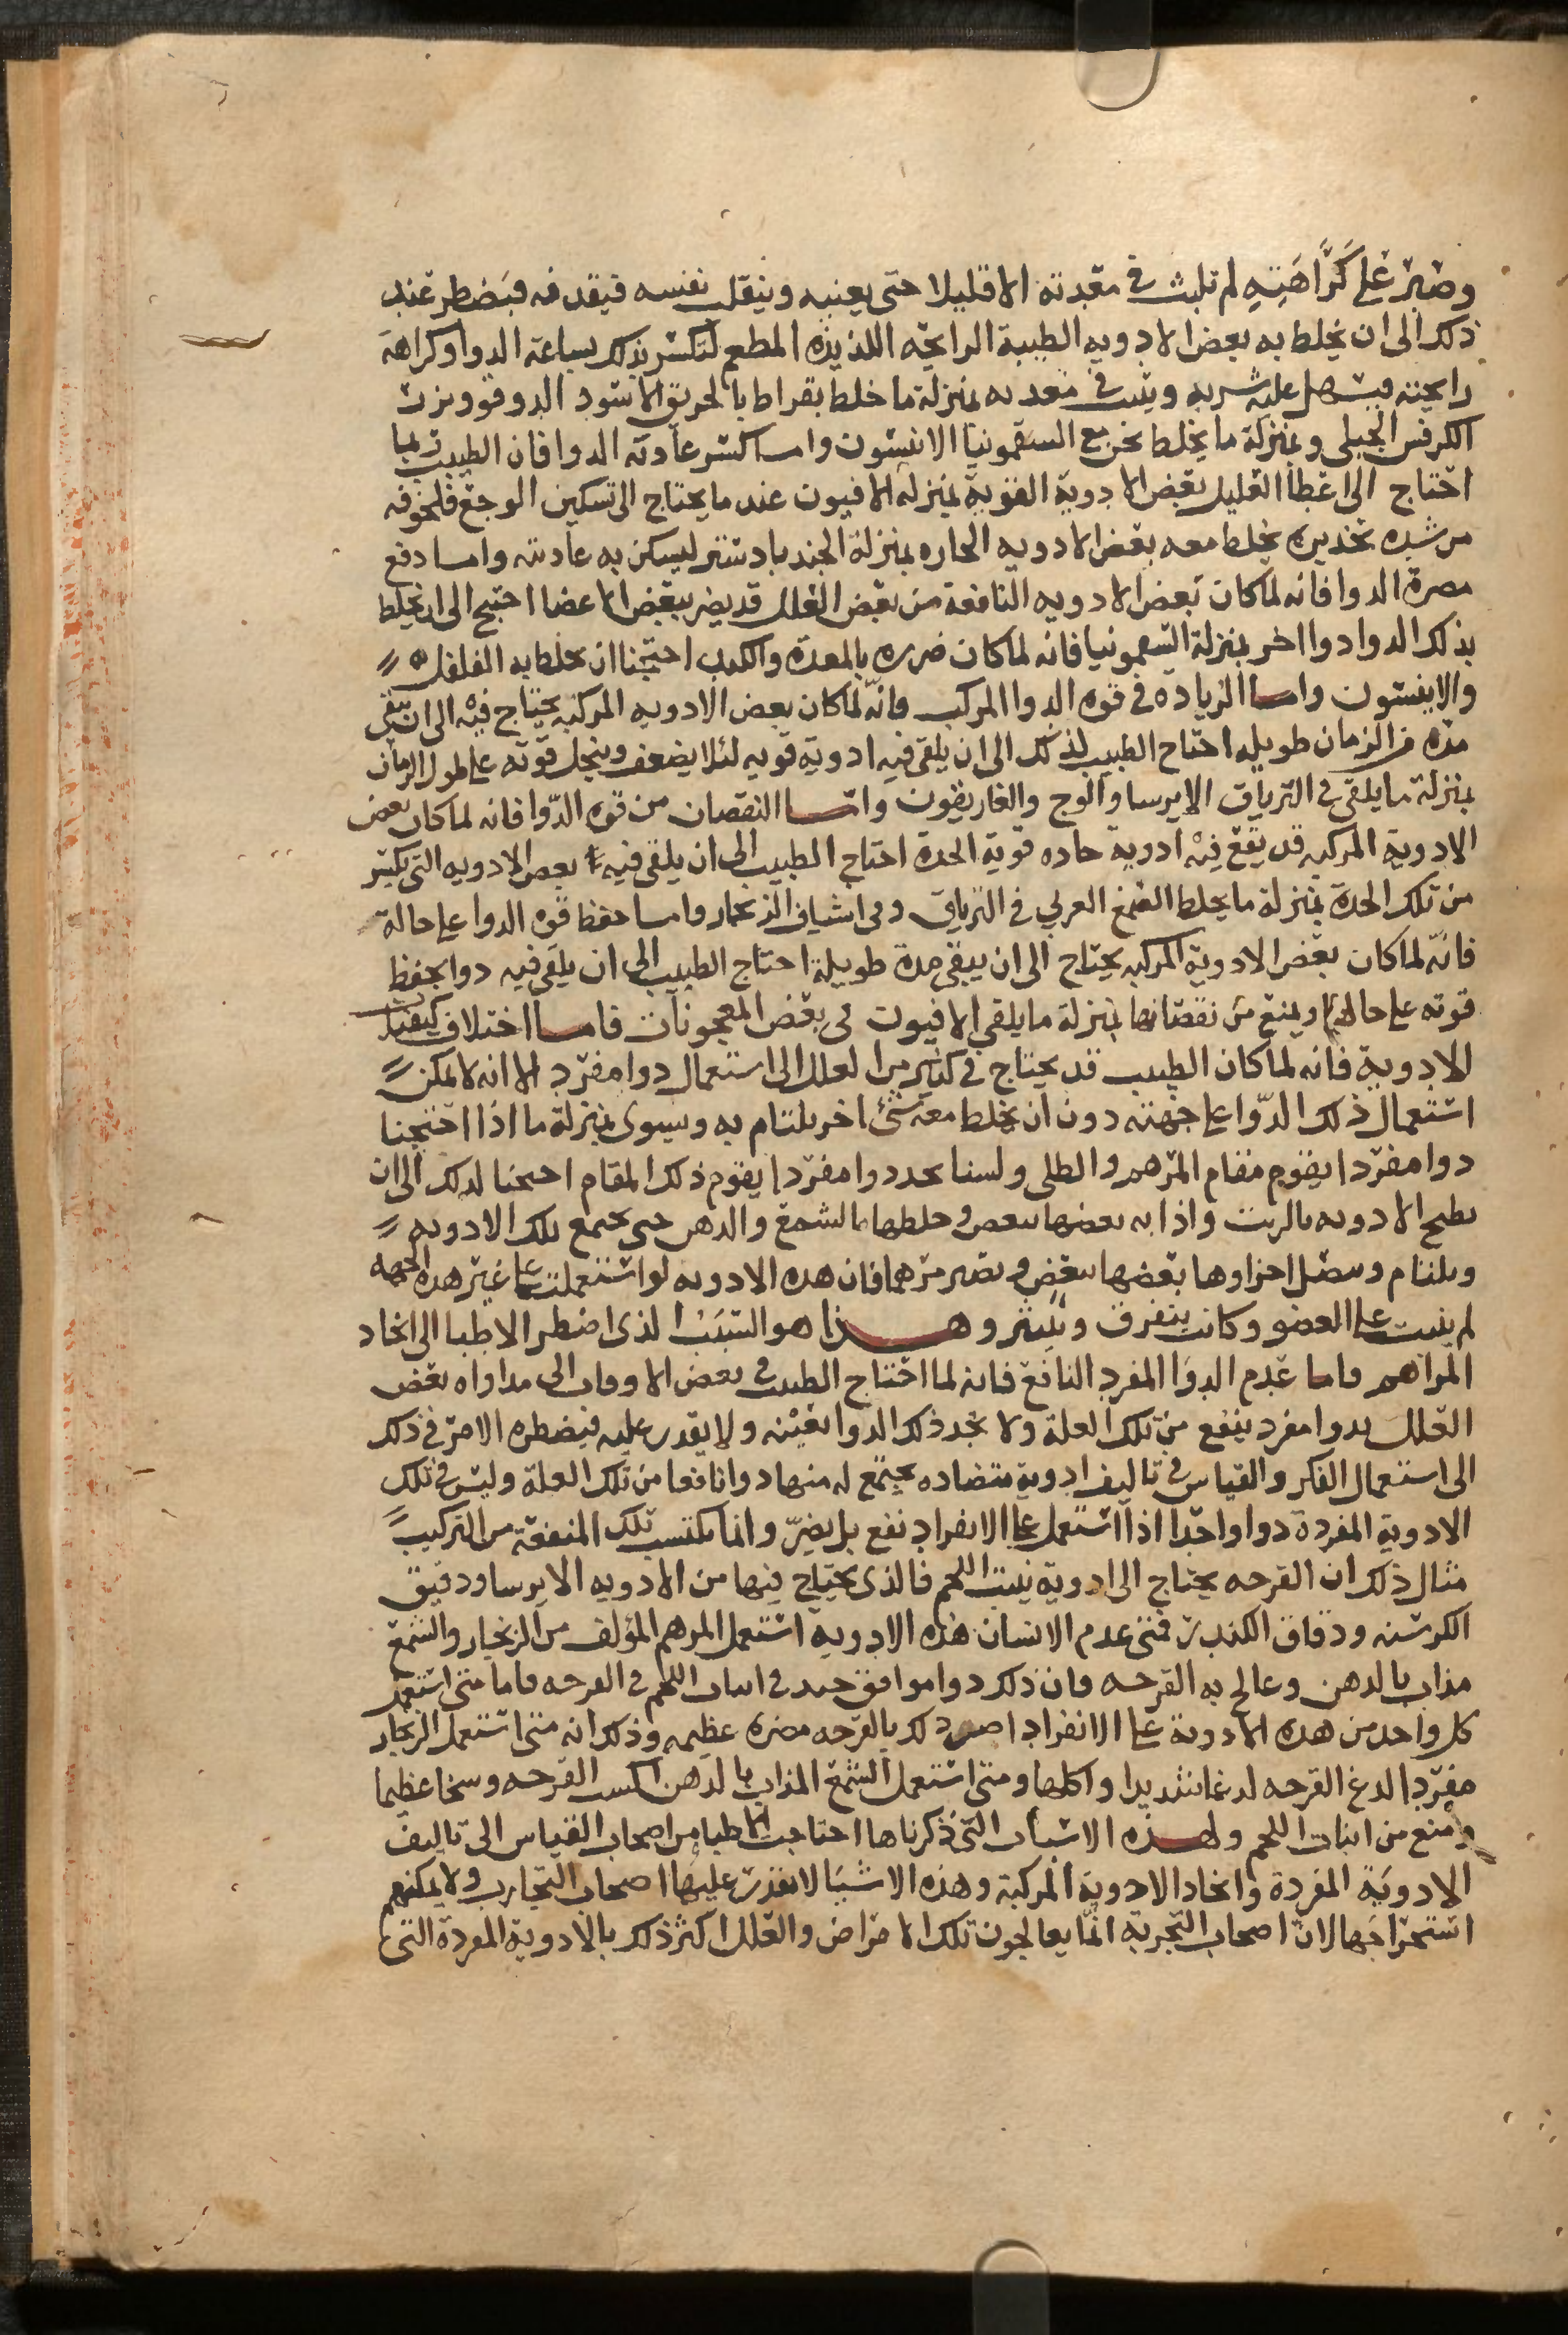 وصبر على كراهيته لم تلبث في معدته الا قليلا حتى يعنيه وينقل نفسه فيقدفه فيضطر عند
ذلك الى ان يخلط به بعض الادويه الطيبة الرايحه اللذيذه المطعم لتكسر بذلك بساعة الدوا وكراهة
رايحته فيسهل عليه شربه ويثبت في معدته بمنزلة ما خلط بقراط بالخربق الاسود الدوقو وبزر
الكرفس الجبلي وبمنزلة ما يخلط نحن مع السقمونيا الانيسون واما كسر عادته الدوا فان الطبيب ربما
احتاج الى اعطا العليل بعض الادوية القوية بمنزلة الافيون عند ما يحتاج الى تسكين الوجع فلخوفه
من شده تخديره يخلط معه بعض الادويه الحاره بمنزلة الجندبادستر ليسكن به عاديته واما دفع
مضرة الدوا فانه لما كان بعض الادويه النافعة من بعض العلل قد يضر ببعض الاعضا احتيج الى ان يخلط
بذلك الدوا دوا اخر بمنزلة السقمونيا فانه لما كان ضرره بالمعدة والكبد احتجنا ان نخلط به الفلفل
والانيسون واما الزياده في قوه الدوا المركب فانه لما كان بعض الادويه المركبه يحتاج فيه الى ان تبقى
مده من الزمان طويله احتاج الطبيب لذلك الى ان يلقى فيه ادوية قويه لئلا يضعف وينحل قوته على طول الزمان
بمنزلة ما يلقى في الترياق الايرسا والوج والغاريقون واما النقصان من قوه الدوا فانه لما كان بعض
الادوية المركبه قد يقع فيه ادوية حاده قوية الحدة احتاج الطبيب الى ان يلقى فيه بعض الادويه التي تكسر
من تلك الحدة بمنزلة ما يخلط الصمغ العربي في الترياق وفي اشياف الزنجار واما حفظ قوه الدوا على حالة
فانه لما كان بعض الادوية المركبه يحتاج الى ان يبقى مدة طويلة احتاج الطبيب الى ان يلقى فيه دوا يحفظ
قوته على حالها ويمنع من نقصانها بمنزلة ما يلقى الافيون في بعض المعجونات فاما اختلاف كيفيات
الادوية فانه لما كان الطبيب قد يحتاج في كثير من العلل الى استعمال دوا مفرد الا انه لا يمكن
استعمال ذلك الدوا على جهته دون ان يخلط معه شئ اخر يلتام به ويسوى بمنزلة ما اذا احتجنا
دوا مفردا يقوم مقام المرهم والطلى ولسنا نجد دوا مفردا يقوم ذلك المقام احتجنا لذلك الى ان
نطبخ الادويه بالزيت واذابه بعضها ببعض وخلطها بالشمع والدهن حتى تجتمع تلك الادويه
ويلتام ويتصل اجزاوها بعضها ببعض ويصير مرهما فان هذه الادويه لو استعملت على غير هذه الجهه
لم يثبت على العضو وكانت يتفرق وينتثر وهذا هو السبب الذي اضطر الاطبا الى اتخاذ
المراهم واما عدم الدوا المفرد النافع فانه لما احتاج الطبيب في بعض الاوقات الى مداواه بعض
العلل بدوا مفرد ينفع من تلك العلة ولا نجد ذلك الدوا بعينه ولا يقدر عليه فيضطره الامر في ذلك
الى استعمال الفكر والقياس في تاليف ادوية متضاده يجتمع له منها دوا نافعا من تلك العلة وليس في تلك
الادوية المفردة دوا واحدا اذا استعمل على الانفراد نفع بل يضر وانما يكتسب تلك المنفعة من التركيب
مثال ذلك ان القرحه يحتاج الى ادوية ينبت اللحم فالذى يحتاج فيها من الادويه الايرسا ودقيق
الكرسنه ودقاق الكندر فمتى عدم الانسان هذه الادوية استعمل المرهم المؤلف من الزنجار والشمع
مذاب بالدهن وعالج به القرحه فان ذلك دوا موافق جيد في انبات اللحم في القرحه فاما متى استعمل
كل واحد من هذه الادوية على الانفراد اضر ذلك بالقرحه مضرة عظيمه وذلك انه متى استعمل الزنجار
مفردا لدغ القرحه لدغا شديدا واكلها ومتى استعمل الشمع المذاب بالدهن اكسب القرحه وسخا عظيما
ومنع من انبات اللحم ولهذه الاسباب التي ذكرناها احتاجت الاطبا من اصحاب القياس الى تاليف
الادوية المفردة واتخاد الادوية المركبة وهذه الاشيا لا يقدر عليها اصحاب التجارب ولا يمكنهم
استخراجها لان اصحاب التجربة انما يعالجون تلك الامراض والعلل اكثر ذلك بالادوية المفردة التي